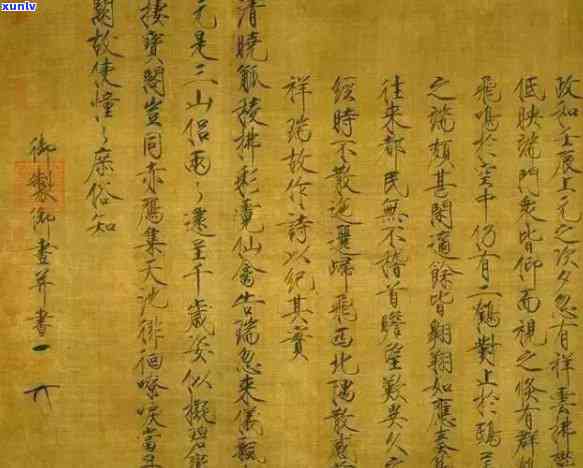 xunlv
政和壬辰上元之次夕忽有祥雲拂鬱
低映端門衆皆仰而視之倏有群鶴
飛鳴於空中仍有二鶴對止於鴟
之端頗甚閑適餘皆翺翔如應奏
往來都民無不稽首瞻望歎異久之
經時不散迤邐歸飛西北隅散感
祥瑞故作詩以紀其實
清曉觚稜拂彩霓仙禽告瑞忽來儀飄
元是三山侶兩々還呈千歲姿似擬碧鸞
棲寶閣豈同赤鴈集天池徘徊嘹唳當
闕故使憧々庶俗知
御製御畫并書